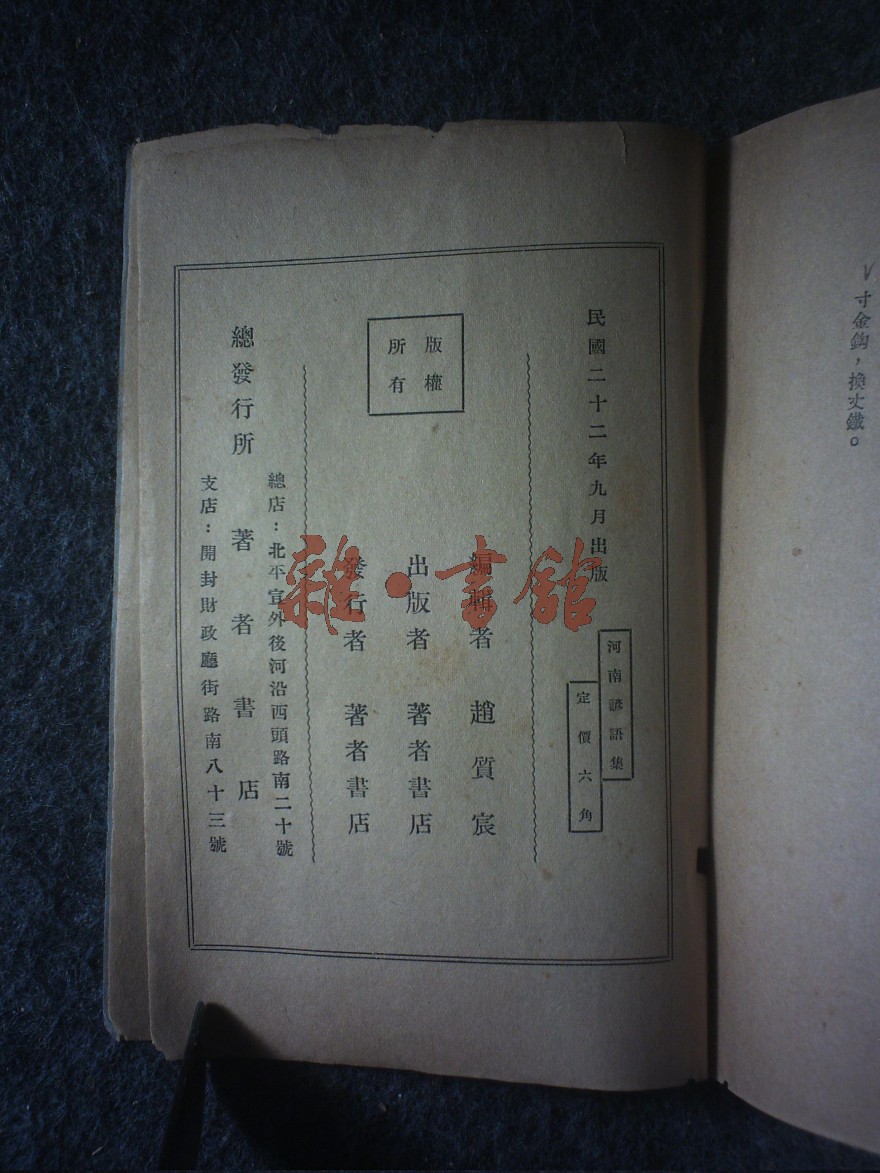 寸金鈎，換丈鐵。
民國二十二年九月出版
河南諺語集
定價六角
編輯者 趙質宸
出版者 著者書店
發行者 著者書店
版權
所有
總店：北平宣外後河沿西頭路南二十號
總發行所 著者書店
支店：開封財政廳街路南八十三號
雜·書館